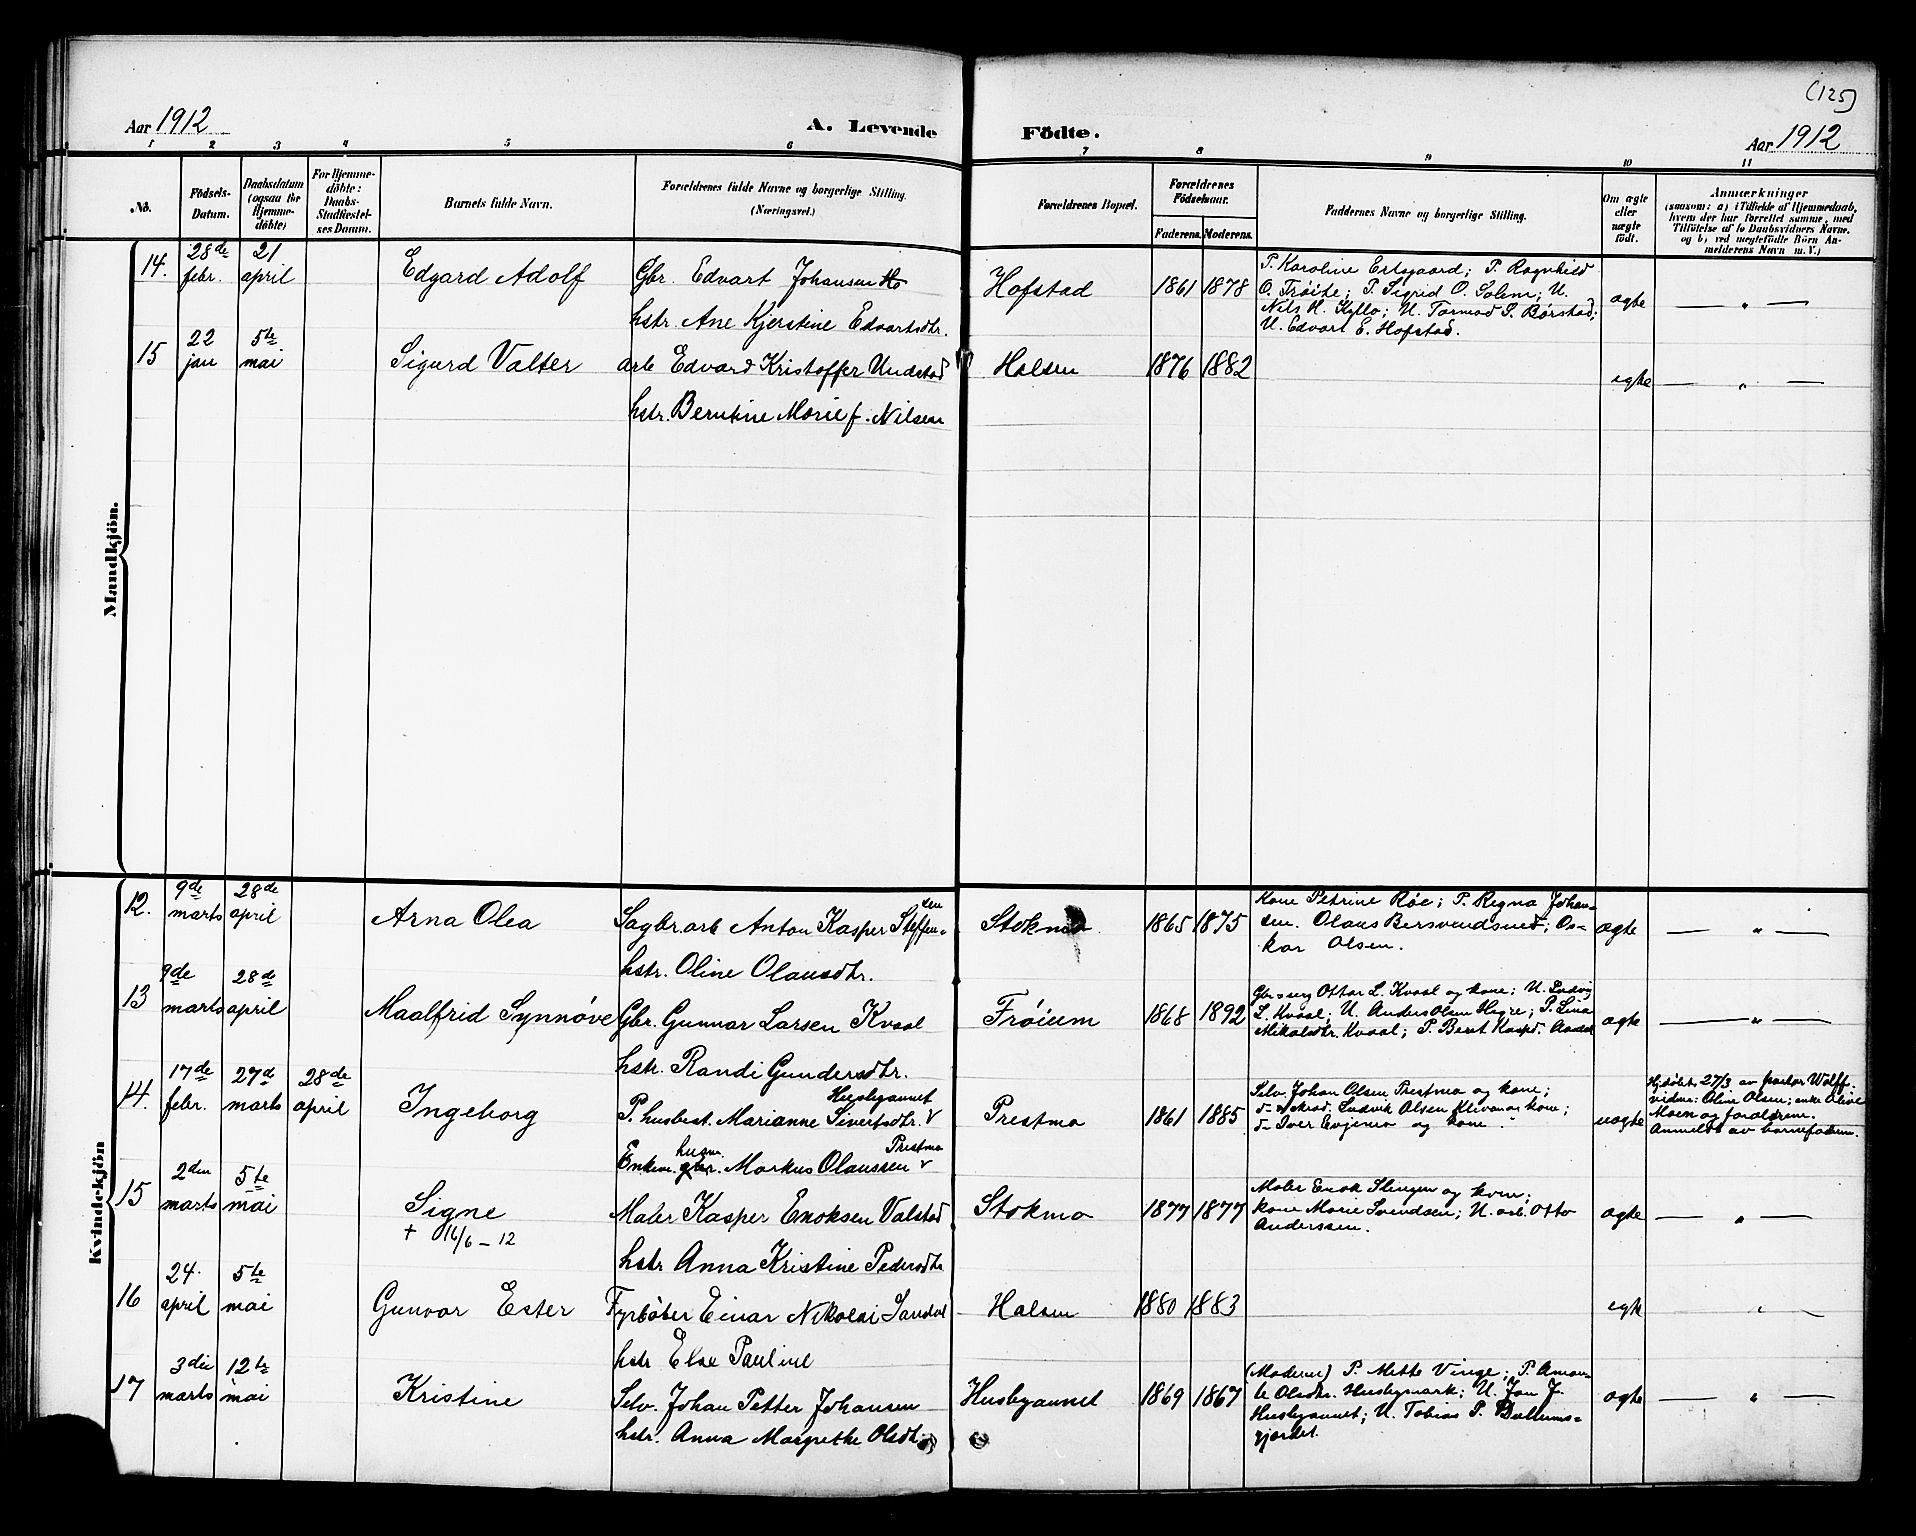 (125)
Aar 1912
A. Levende Födte.
Aar 1912
1 2 3 4 5 6 7 8 9 10 11
No.
Födsels-
Datum.
Daabsdatum
(ogsaa for
Hjemme-
döbte)
For Hjemme-
döbte:
Daabs-
Stadfæstel-
ses Datum.
Barnets fulde Navn.
Forældrenes fulde Navne og borgerlige Stilling.
(Næringsvei.)
Forældrenes Bopæl.
Forældrenes
Födselsaar.
Faderens. Moderens.
Faddernes Navne og borgerlige Stilling.
Om ægte
eller
uægte
födt.
Anmærkninger
(saasom: a) i Tilfælde af Hjemmedaab,
hvem der har forrettet samme, med
Tilföielse af to Daabsvidners Navne.
og b) ved uægtefödte Börn An-
melderens Navn m. V.)
Mandkjön.
14.
28de
febr.
21
april
Edgard Adolf
Gbr. Edvart Johansen Ho
hstr. Ane Kjerstine Edvartsdtr.
Hofstad
1861 1878
P. Karoline Ertsgaard; P. Ragnhild
O. Trøite; P. Sigrid O. Solem; U.
Nils H. Kyllo; U. Tormod P. Børstad;
U. Edvart E. Hofstad.
ægte
— " —
15
22
jan
5te
mai
Sigurd Valter
arb Edvard Kristoffer Undstad
hstr. Berntine Marie f. Nilsen
Halsen
1876 1882
egte
— " —
Kvindekjön
12.
9de
marts
28de
april
Arna Olea
Sagbr.arb Anton Kasper Steffen-
sen
hstr. Oline Olausdtr.
Stokmo
1865 1875
Kone Petrine Røe; P. Regna Johan-
sen. Olaus Bersvendsned; Os-
kar Olsen.
ægte
— " —
13
9de
marts
28de
april
Maalfrid Synnøve
Gbr. Gunnar Larsen Kvaal
hstr. Randi Gundersdtr.
Frøium
1868 1892
Ottar L. Kvaal og kone; U. Ludvig
L. Kvaal; U. Anders Olsen Hegre; P. Lina
Mikalsdtr. Kvaal; P. Berit
ægte
— " —
14.
17de
febr.
27d
marts
28de
april
Ingeborg
Husbyaunet
P. husbest. Marianne Sivertsdtr.
husm. Prestmo
Enkem. gbr. Markus Olaussen
Prestmo
1861 1885
Selv. Johan Olsen Prestmo og kone;
Ludvik Olsen Klevan og kone;
d- Iver Evjemo og kone.
uægte
Hjdøbt 27/3 av pastor Wolff.
vidner: Oline Olsen; enke Olive
Moen og forældrene.
Anmeldt av barnefaderen.
15
2den
marts
5te
mai
Signe
+ 16/6 - 12
Maler Kasper Enoksen Valstad
hstr Anna Kristine Pedersdtr
Stokmo
1877 1877
Maler Enok Slungen og kone;
kone Marie Svendsen; U. arb. Otto
Anderssen.
ægte
— " —
16
24.
april
5te
mai
Gunvor Ester
Fyrbøter Einar Nikolai Sandvol
hstr Else Pauline
Halsen
1880 1883
egte
— " —
17
3die
marts
12te
mai
Kristine
Selv. Johan Petter Johansen
hstr. Anna Margrethe Olsdtr
Husbyaunet
1869 1867
(Moderen) P. Mette Vinge; P. Aman-
da Olsdtr. Husbymark; U. Jon J.
Husbyaunet; U. Tobias P. Ballums-
gjærdet.
ægte
— " —